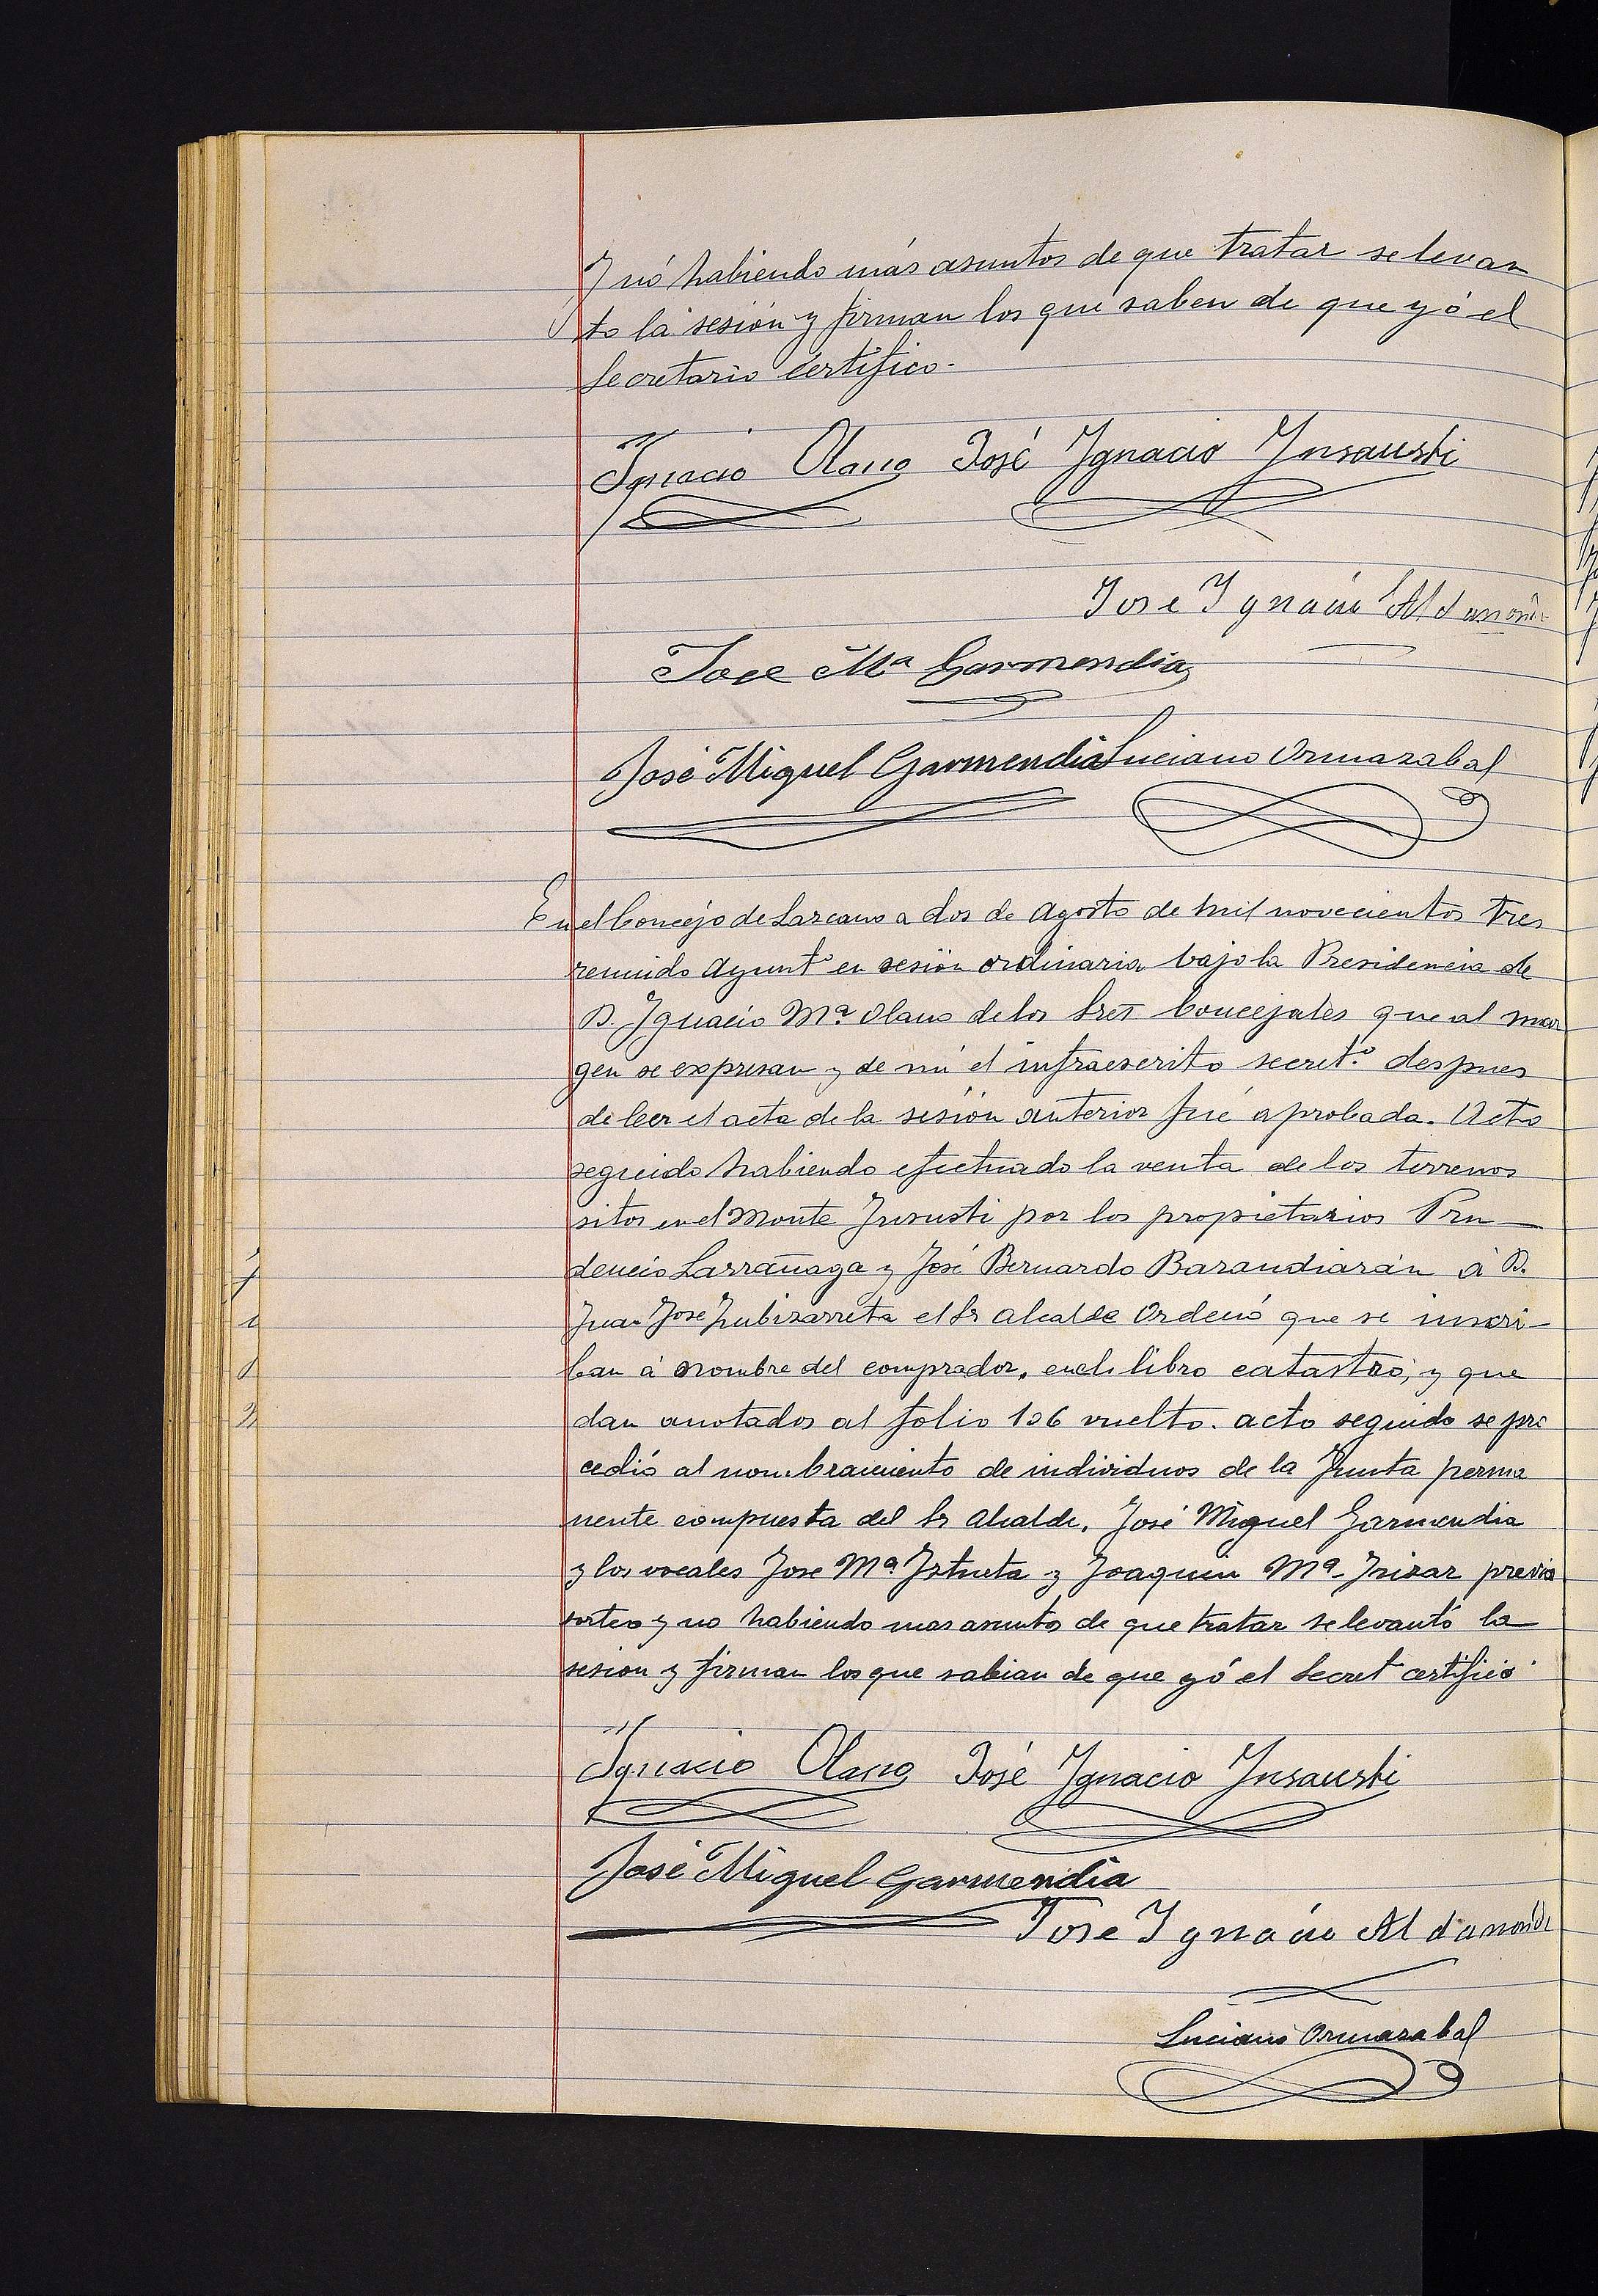 Y nó habiendo más asuntos de que tratar se levan
to la sesión y firman los que saben de que yó el
Secretario certifico.
Ignacio Olano José Ygnacio Ynsausti
Jose Ygnacio Aldanondo
Jose Mª Garmendia
José Miguel Garmendia Luciano Ormazabal
En el Concejo de Lazcano a dos de Agosto de mil novecientos tres
reunido Ayuntº en sesión ordinaria bajo la Presidencia de
D. Ygnacio Mª Olano de los Sres Concejales que al mar
gen se expresan y de mi el infraescrito secretº despues
de leer el acta de la sesión anterior fué aprobada. Acto
seguido habiendo efectuado la venta de los terrenos
sitos en el Monte por los propietarios Pru-
dencio Larrañaga y José Bernardo Barandiarán á D.
Juan José Zubizarreta el Sr Alcalde Ordenó que se inscri-
ban á nombre del comprador, en el libro catastro, y que
dan anotados al folio 106 vuelto. acto seguido se pro
cedió al nombramiento de individuos de la Junta perma
nente compuesta del Sr Alcalde, José Miguel Garmendia
y los vocales Jose Mª Iztueta y Joaquin Mª Irizar previo
sorteo y no habiendo mas asuntos de que tratar se levantó la
sesion y firman los que sabian de que yó el Secret certifico.
Ignacio Olano José Ygnacio Ynsausti
José Miguel Garmendia
Jose Ygnacio Aldanondo
Luciano Ormazabal